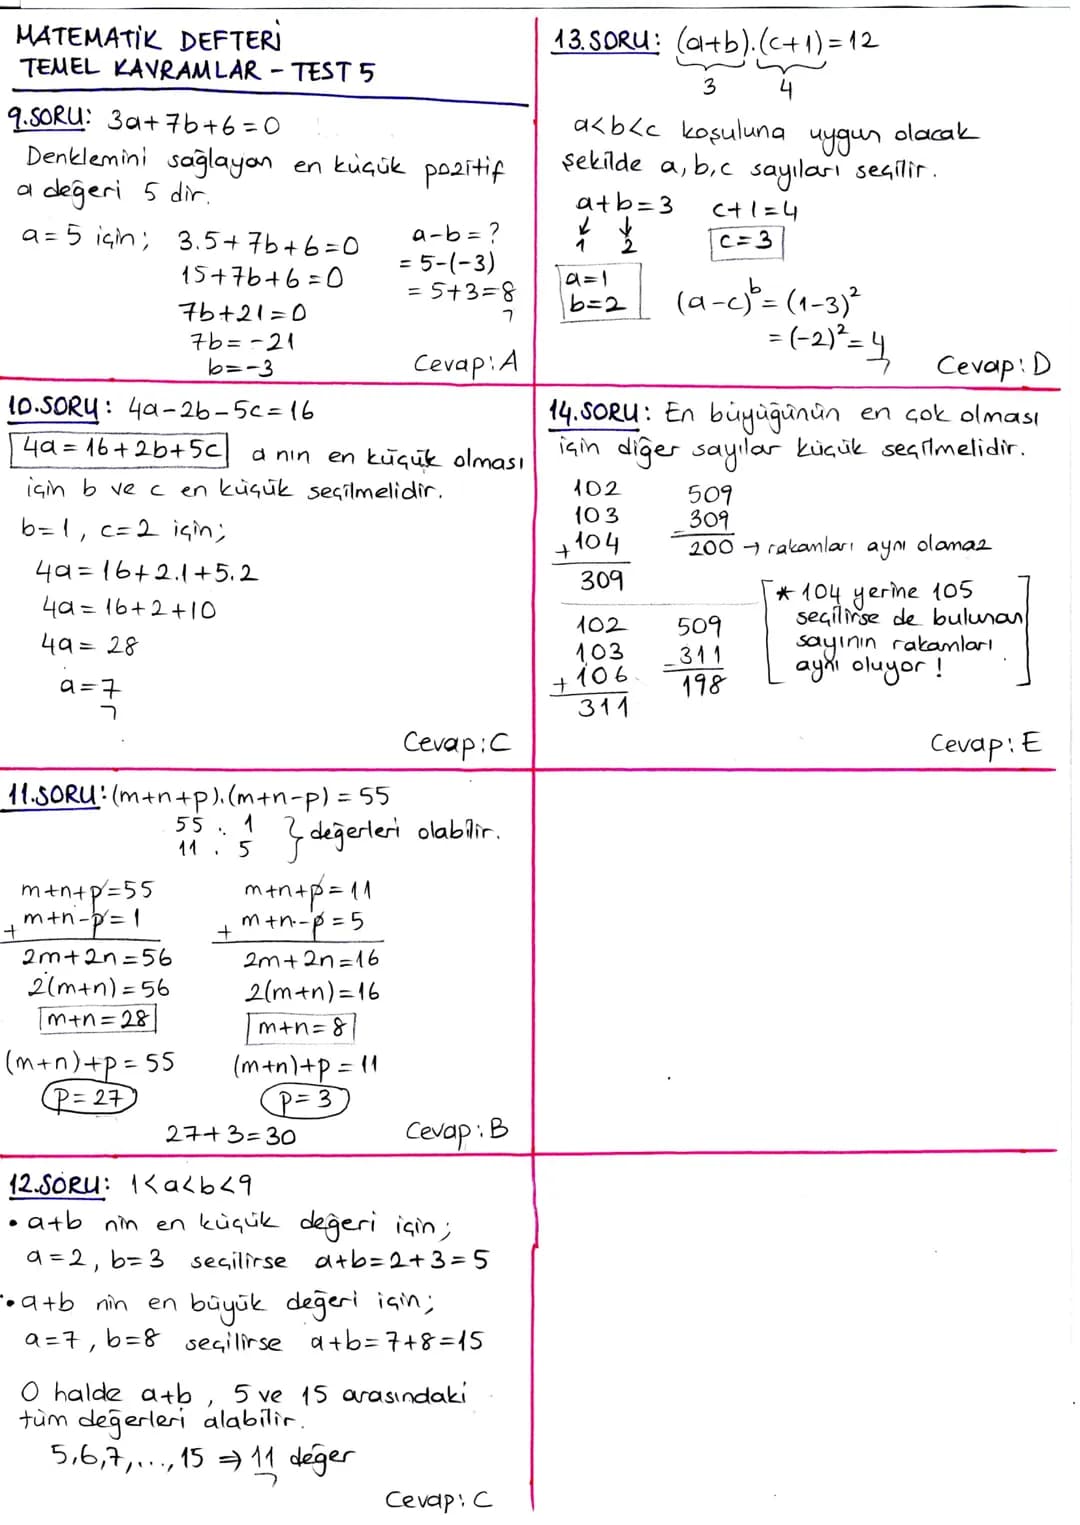 MATEMATİK DEFTERİ
TEMEL KAVRAMLAR - TEST 5
9.SORU: 3a+7b+6=0
Denklemini sağlayan en küçük pozitif
a değeri 5 dir.
a=5 için; 3.5+7b+6=0
15+7b+6=0
7b+21=0
7b=-21
b=-3
a-b=?
=5-(-3)
=5+3=8
Cevap: A
10.SORU: 4a-2b-5c=16
4a=16+2b+5c a nın en küçük olması
için b ve c en küçük seçilmelidir.
b=1, c=2 için;
4a=16+2.1+5.2
4a=16+2+10
4a=28
a=7
Cevap: C
11.SORU: (m+n+p).(m+n-p)=55
55 . 1
11 . 5 } değerleri olabilir.
m+n+p=55
+ m+n-p=1
2m+2n=56
2(m+n)=56
m+n=28
(m+n)+p=55
p=27
m+n+p=11
+ m+n-p=5
2m+2n=16
2(m+n)=16
m+n=8
(m+n)+p=11
p=3
27+3=30
Cevap: B
12.SORU: 1<a<b<9
• a+b nin en küçük değeri için;
a=2, b=3 seçilirse a+b=2+3=5
• a+b nin en büyük değeri için;
a=7, b=8 seçilirse a+b=7+8=15
O halde a+b, 5 ve 15 arasındaki
tüm değerleri alabilir.
5,6,7,...,15 ⇒ 11 değer
Cevap: C
13.SORU: (a+b).(c+1)=12
3 4
a<b<c koşuluna uygun olacak
şekilde a, b, c sayıları seçilir.
a+b=3 c+1=4
↓ ↓
1 2 c=3
a=1
b=2
(a-c)^b=(1-3)²
=(-2)²=4
Cevap: D
14.SORU: En büyüğünün en çok olması
için diğer sayılar küçük seçilmelidir.
102
103
+ 104
309
509
- 309
200 → rakamları aynı olamaz
102
103
+ 106
311
509
- 311
198
* 104 yerine 105
seçilirse de bulunan
sayının rakamları
aynı oluyor!
Cevap: E